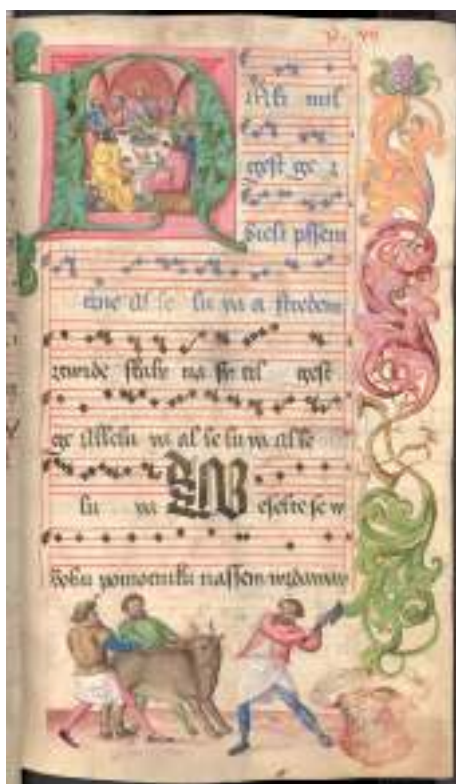 mil
gest ge z
bieli pssen
cżne al le lu ya a stredem
ztwrde skaly na sy til gest
ge allelu ya al le lu ya al le
lu ya W eselte se w
Bohu pomocniku nassem wzdaway